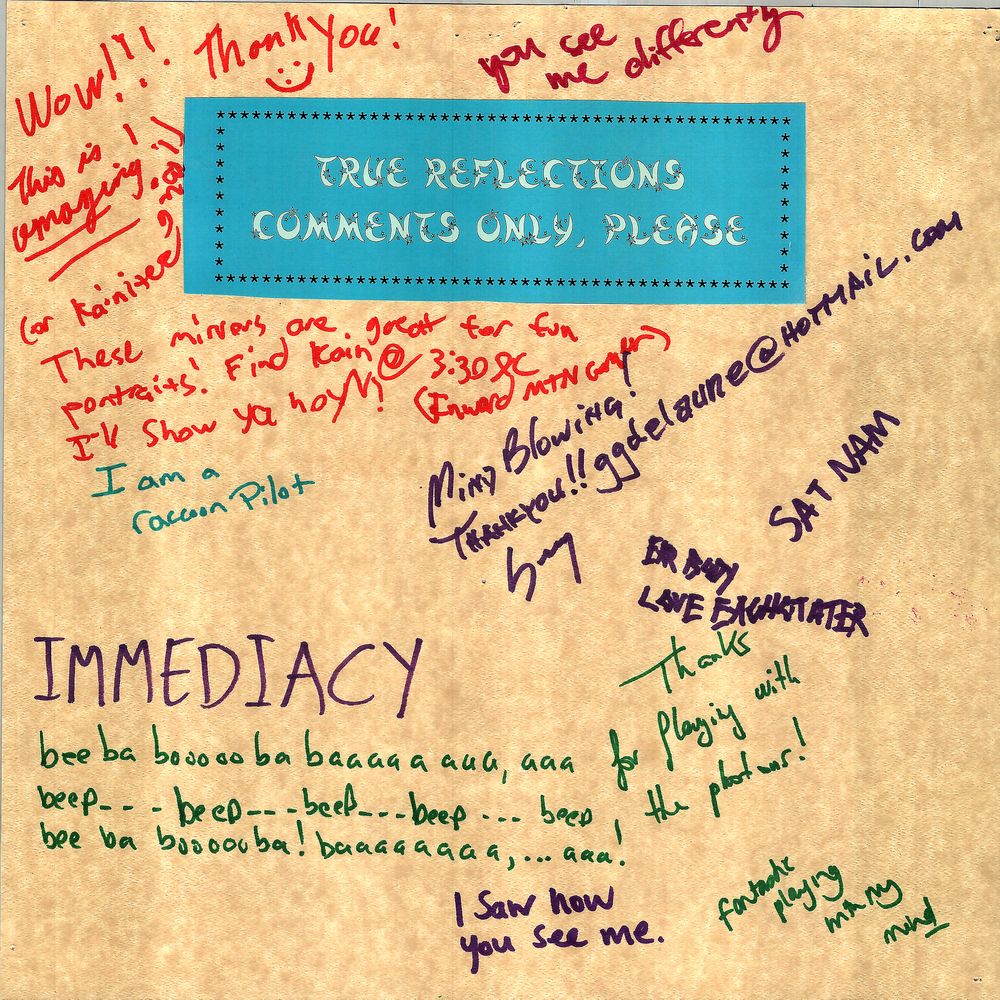 Wow!!! Thank You!
This is
amazing!
you see
me differently
TRUE REFLECTIONS
COMMENTS ONLY, PLEASE
(or Kainitee
These mirrors are great for fun
portraits! Find Kain @ 3:30 &c
I'll Show ya how! (Inward MTN
I am a
raccoon Pilot
Mind Blowing!
THANKYOU!! ggdelaune@HOTMAIL.COM
SAT NAM
ER BODY
LOVE
IMMEDIACY
bee ba boooooba baaaaa aaa, aaa
beep--- beep---beep---beep --- beep
bee ba boooooba! baaaaaaaa,... aaa!
Thanks
for playing with
the photons!
I saw how
you see me.
fantastic
playing
with my
mind